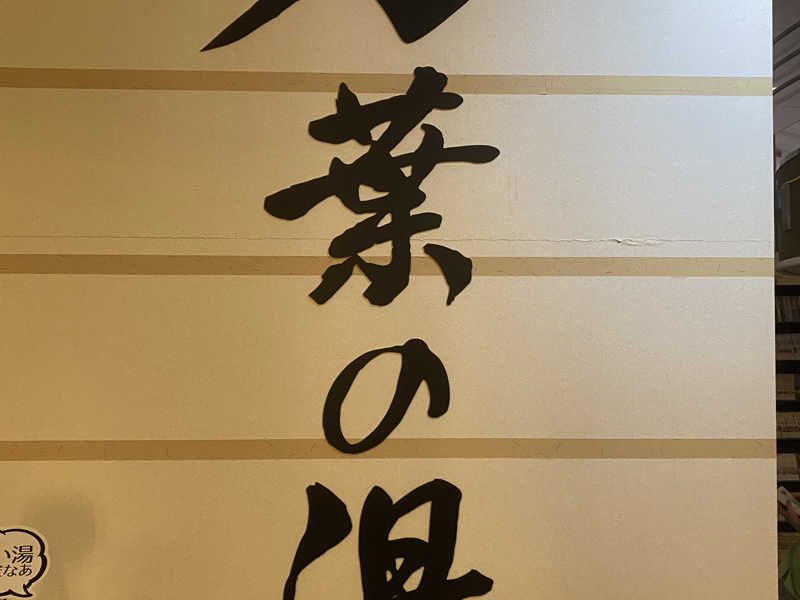 葉の湯
い湯
なあ